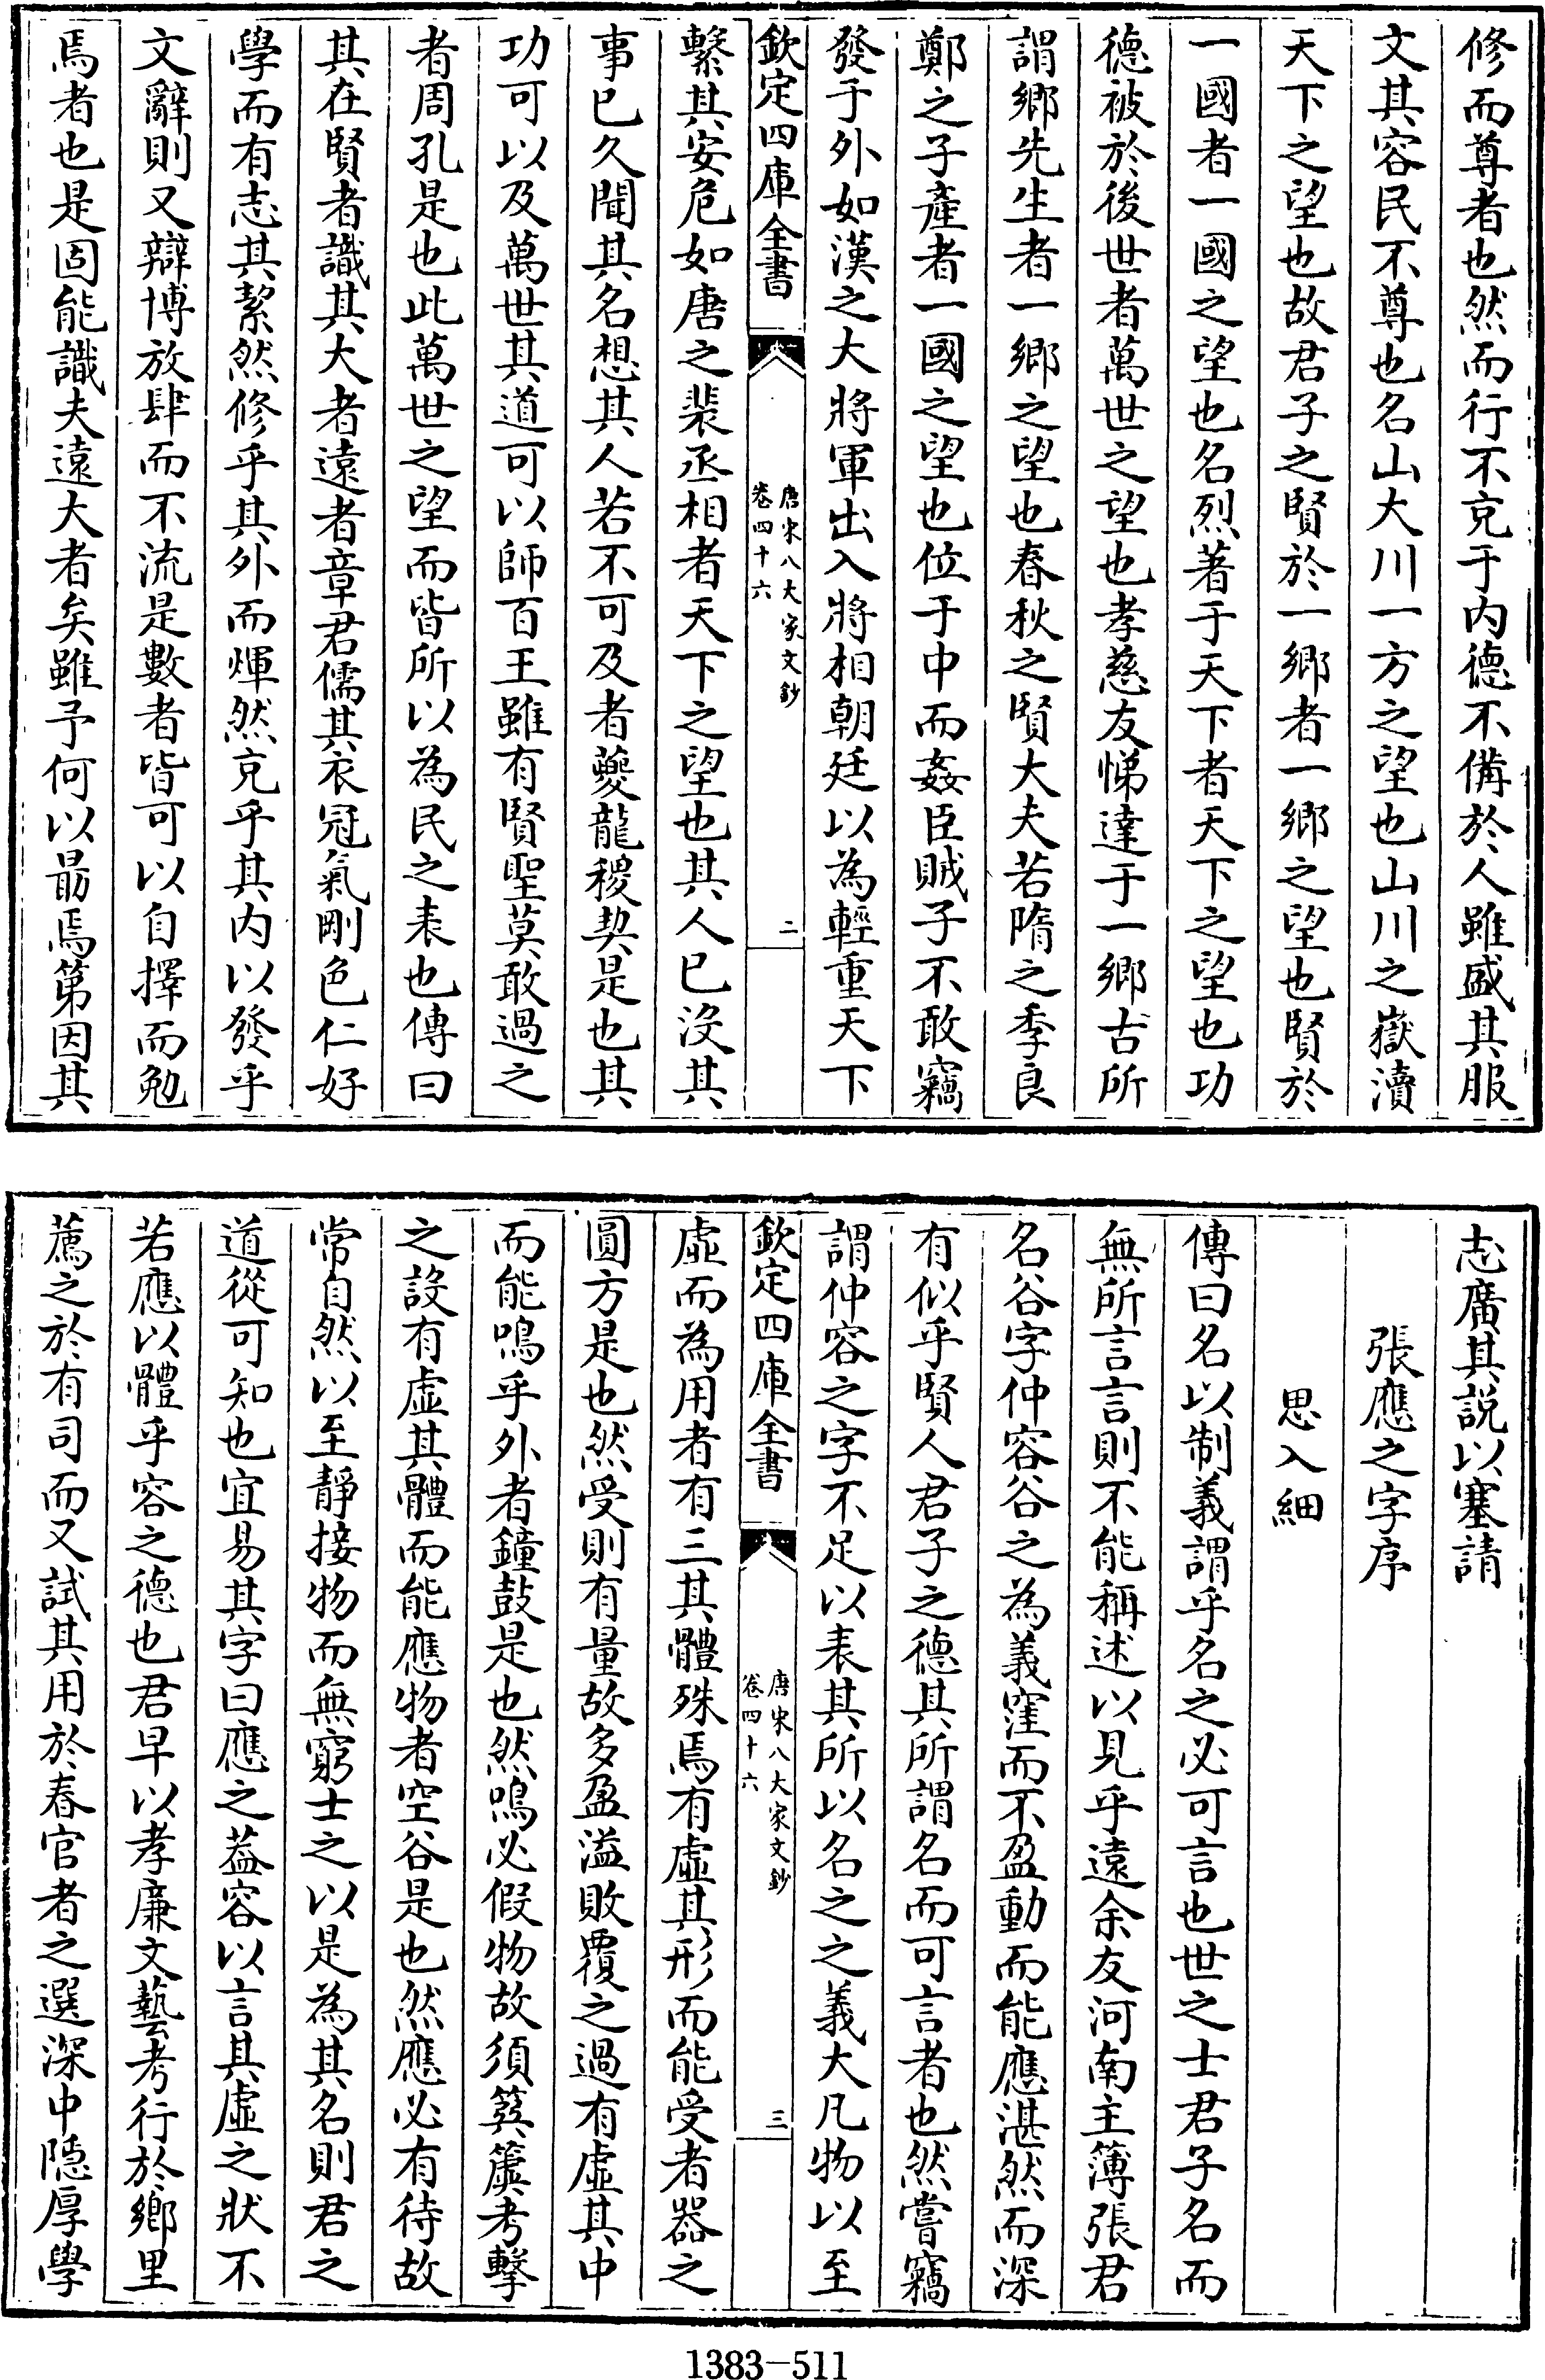 修而尊者也然而行不充于内德不備於人雖盛其服
文其容民不尊也名山大川一方之望也山川之嶽瀆
天下之望也故君子之賢於一鄉者一鄉之望也賢於
一國者一國之望也名烈著于天下者天下之望也功
德被於後世者萬世之望也孝慈友悌達于一鄉古所
謂鄉先生者一鄉之望也春秋之賢大夫若隋之季良
鄭之子產者一國之望也位于中而姦臣賊子不敢竊
發于外如漢之大將軍出入將相朝廷以為輕重天下
欽定四庫全書
唐宋八大家文鈔
卷四十六
二
繫其安危如唐之裴丞相者天下之望也其人已沒其
事已久聞其名想其人若不可及者夔龍稷契是也其
功可以及萬世其道可以師百王雖有賢聖莫敢過之
者周孔是也此萬世之望而皆所以為民之表也傳曰
其在賢者識其大者遠者章君儒其衣冠氣剛色仁好
學而有志其絜然修乎其外而煇然充乎其内以發乎
文辭則又辯博放肆而不流是數者皆可以自擇而勉
焉者也是固能識夫遠大者矣雖予何以朂焉第因其
志廣其說以塞請
張應之字序
思入細
傳曰名以制義謂乎名之必可言也世之士君子名而
無所言言則不能稱述以見乎遠余友河南主簿張君
名谷字仲容谷之為義窪而不盈動而能應湛然而深
有似乎賢人君子之德其所謂名而可言者也然嘗竊
謂仲容之字不足以表其所以名之之義大凡物以至
欽定四庫全書
唐宋八大家文鈔
卷四十六
三
虛而為用者有三其體殊焉有虛其形而能受者器之
圓方是也然受則有量故多盈溢敗覆之過有虛其中
而能鳴乎外者鐘鼓是也然鳴必假物故須簨簴考擊
之設有虛其體而能應物者空谷是也然應必有待故
常自然以至靜接物而無窮士之以是為其名則君之
道從可知也宜易其字曰應之葢容以言其虛之狀不
若應以體乎容之德也君早以孝廉文藝考行於鄉里
薦之於有司而又試其用於春官者之選深中隱厚學
1383-511